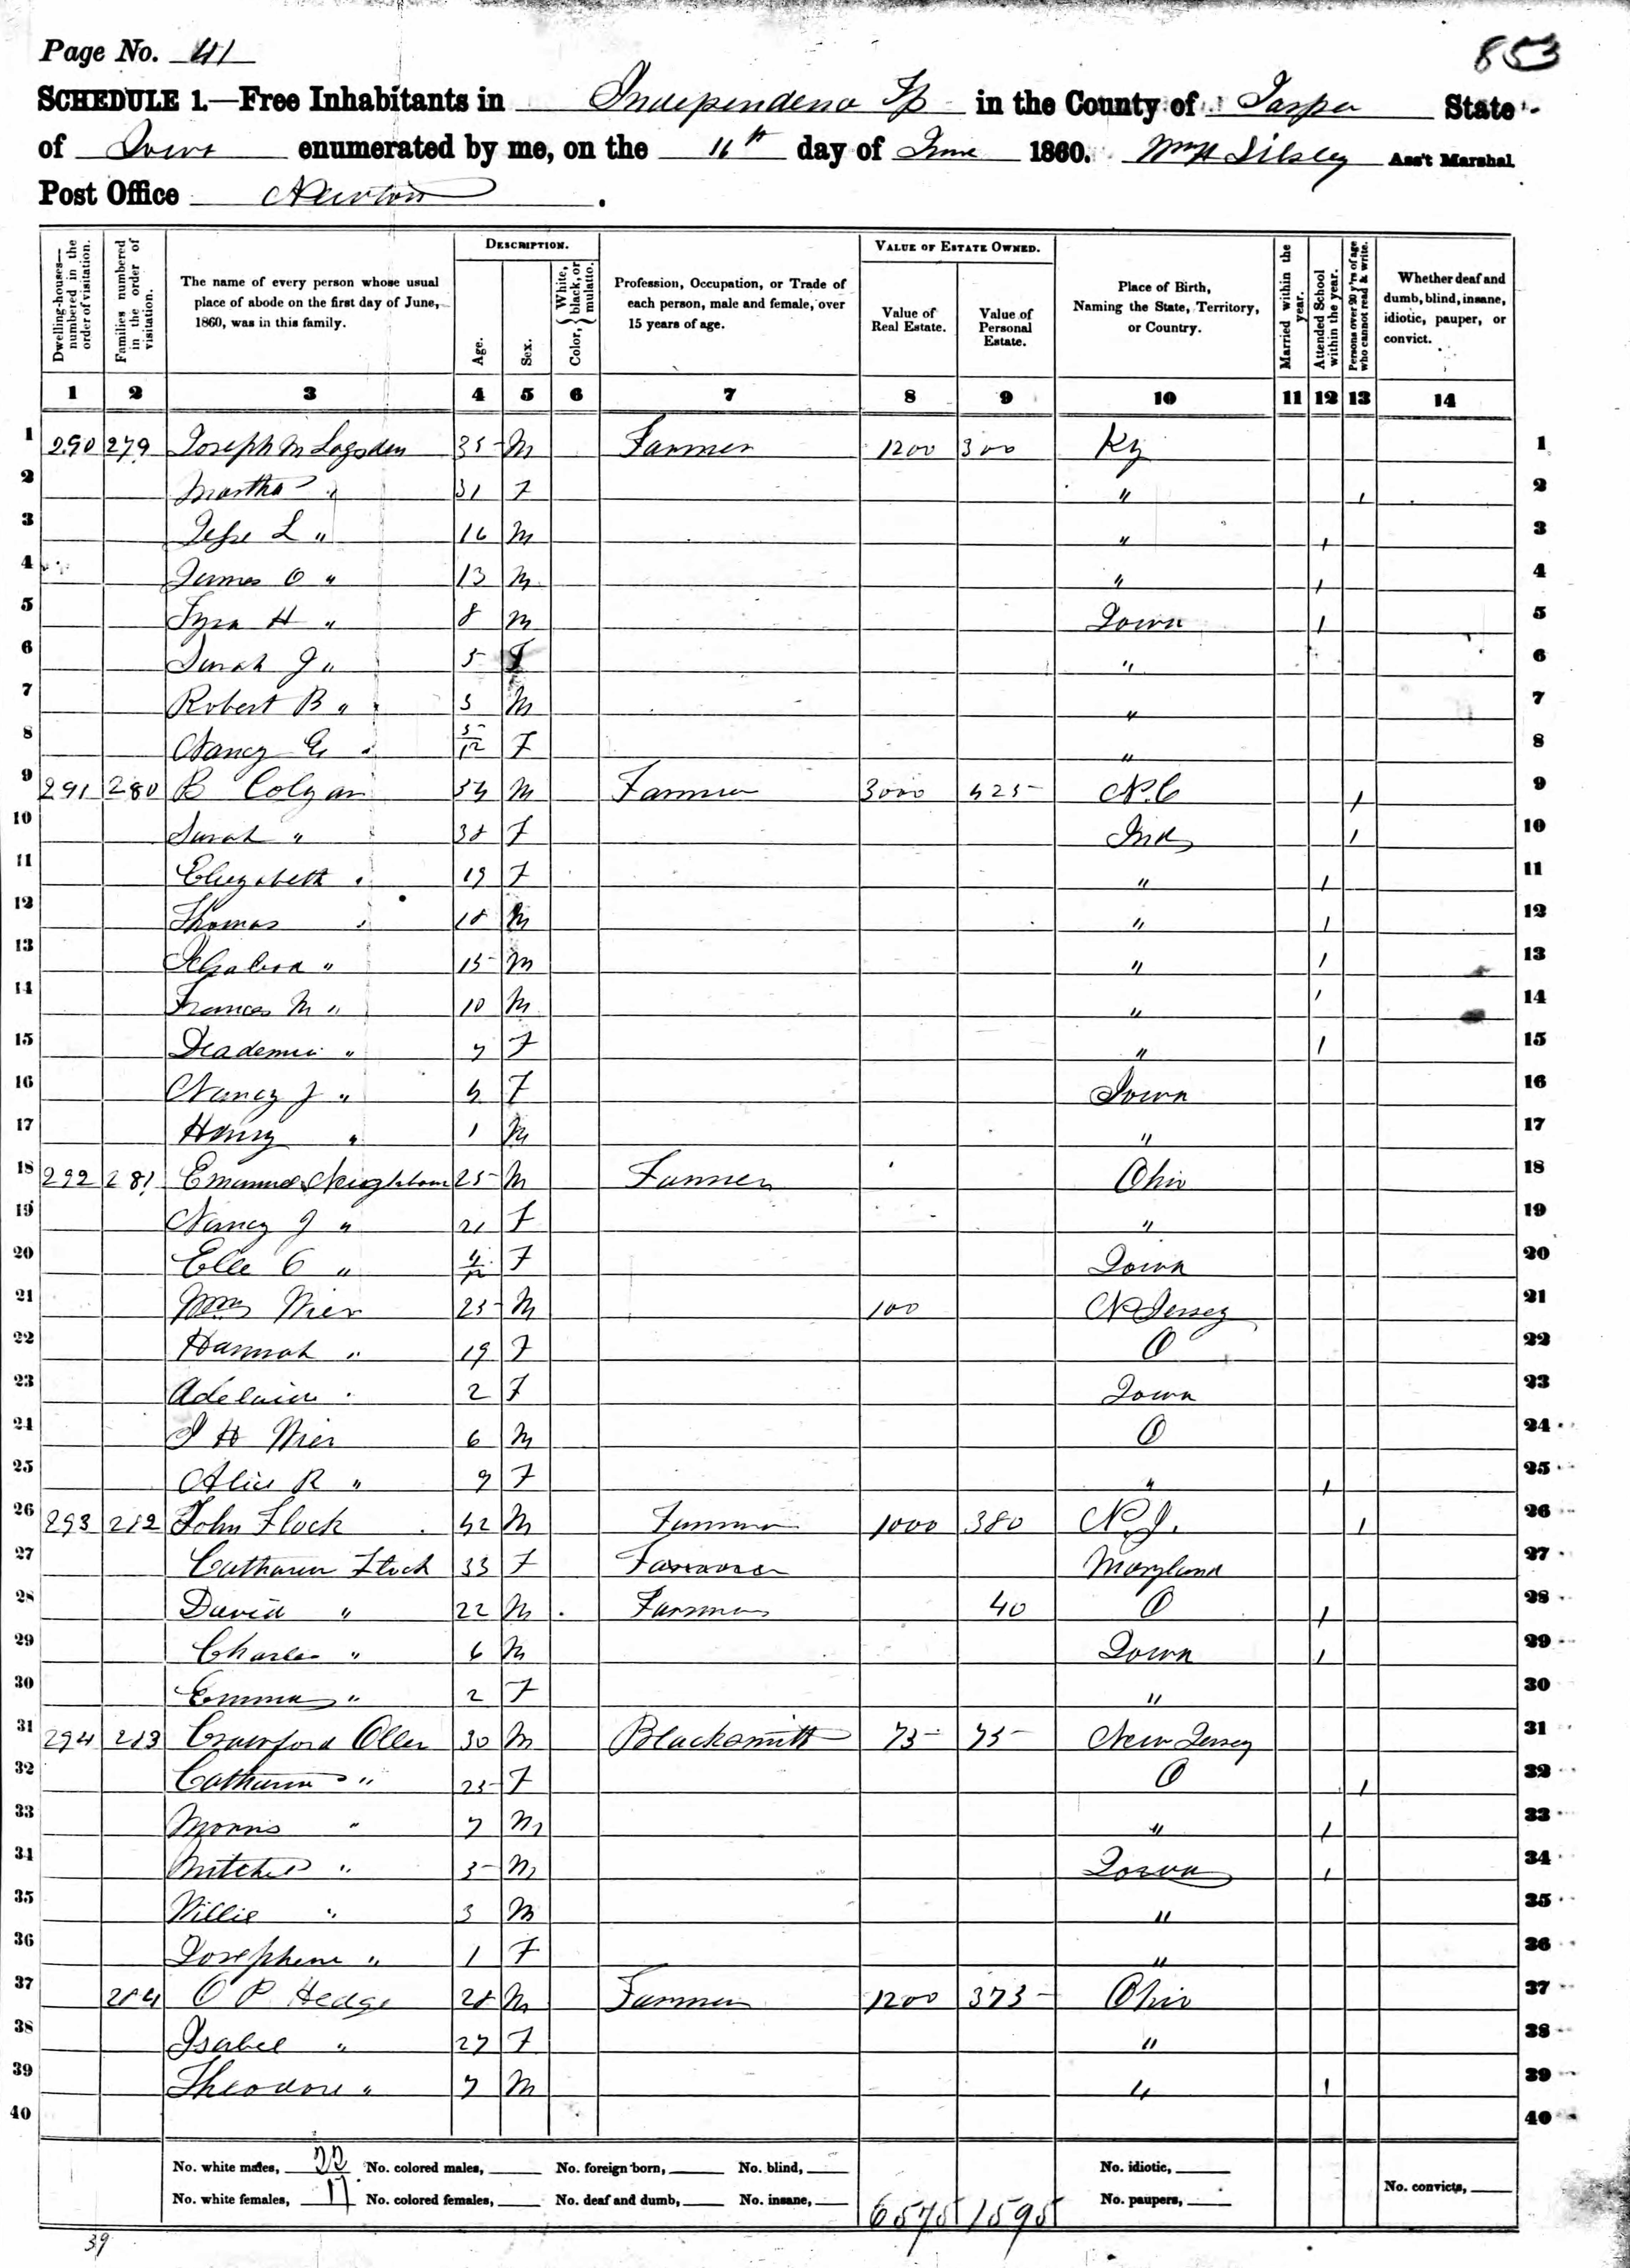 Page No. 41
853
SCHEDULE 1.—Free Inhabitants in Independence Tp in the County of Jasper State
of Iowa enumerated by me, on the 16th day of June 1860. Wm H Silsley Ass't Marshal
Post Office Newton.
Dwelling-houses—numbered in the order of visitation.
Families numbered in the order of visitation.
The name of every person whose usual place of abode on the first day of June, 1860, was in this family.
DESCRIPTION.
Age.
Sex.
Color, { White, black, or mulatto.
Profession, Occupation, or Trade of each person, male and female, over 15 years of age.
VALUE OF ESTATE OWNED.
Value of Real Estate.
Value of Personal Estate.
Place of Birth, Naming the State, Territory, or Country.
Married within the year.
Attended School within the year.
Persons over 20 y'rs of age who cannot read & write.
Whether deaf and dumb, blind, insane, idiotic, pauper, or convict.
1 2 3 4 5 6 7 8 9 10 11 12 13 14
1 290 279 Joseph M Logsden 35 M Farmer 1200 300 Ky 1
2 Martha " 31 F " 1 2
3 Jesse L " 16 M " 1 3
4 James O " 13 M " 1 4
5 Tyra H " 8 M Iowa 1 5
6 Sarah J " 5 F " 6
7 Robert B " 3 M " 7
8 Nancy E " 5/12 F " 8
9 291 280 B Colyan 54 M Farmer 3000 425 N.C 1 9
10 Sarah " 38 F Ind 1 10
11 Elizabeth " 19 F " 1 11
12 Thomas " 18 M " 1 12
13 " 15 M " 1 13
14 Frances M " 10 M " 1 14
15 " 7 F " 1 15
16 Nancy J " 4 F Iowa 16
17 Henry " 1 M " 17
18 292 281 Emanuel Neighbour 25 M Farmer Ohio 18
19 Nancy J " 21 F " 19
20 Elle C " 4/12 F Iowa 20
21 Wm Wier 25 M 100 N Jersey 21
22 Hannah " 19 F O 22
23 Adelaide " 2 F Iowa 23
24 J H Wier 6 M O 24
25 Alice R " 9 F " 1 25
26 293 282 John Flock 42 M Farmer 1000 380 N.J. 1 26
27 Catharin Flock 33 F Farmer Maryland 27
28 David " 22 M Farmer 40 O 1 28
29 Charles " 6 M Iowa 1 29
30 Emma " 2 F " 30
31 294 283 Crawford Oller 30 M Blacksmith 75 75 New Jersey 31
32 Catharin " 25 F O 1 32
33 Morris " 7 M " 1 33
34 Mitchel " 5 M Iowa 1 34
35 Willie " 3 M " 35
36 Josephine " 1 F " 36
37 284 O P Hedge 28 M Farmer 1200 375 Ohio 37
38 Isabel " 27 F " 38
39 Theodore " 7 M " 1 39
40 40
No. white males, 22 No. colored males, No. foreign born, No. blind, No. idiotic,
No. white females, 17 No. colored females, No. deaf and dumb, No. insane, 6575 1595 No. paupers, No. convicts,
39